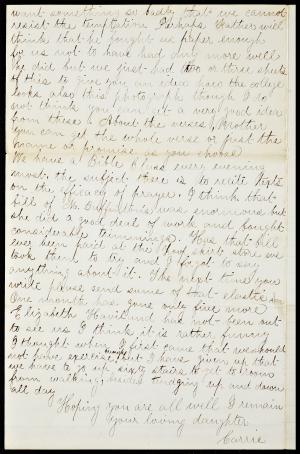 want something so badly that we cannot
resist the temptation Perhaps Father will
think that he bought us paper enough
for us not to have had any more well
he did but we just had two or three sheets
of this to give you an idea how the college
looks also this photograph though I do
not think you can get a very good idea
from these. About the verses, Mother
you can get the whole verse or just the
name or promise as you choose
We have a Bible Class every evening
most. the subject there is to recite texts
on the efficacy of prayer. I think that
bill of Mrs was enormous but
she did a good deal of work and bought
considerable trimmings. Has that bill
ever been paid at the skirt store we
took them to try and I forgot to say
anything about it. The next time you
write please send some of that elastic
One month has gone only five more
Elizabeth Haviland has not been out
to see us I think it is rather funny
I thought when I first came that we should
not have exercise enough but I have given up that
we have to go up sixty stairs to get to room
from walking, besides trudging up and down
all day
Hoping you are all well I remain
Your loving daughter
Carrie